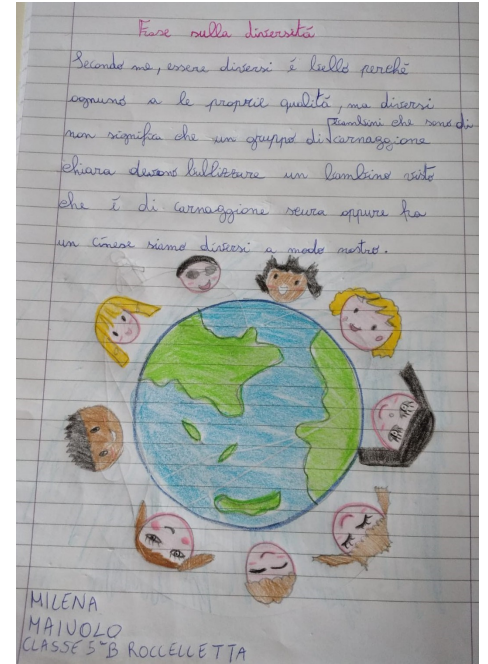 Frase sulla diversità
Secondo me, essere diversi é bello perché
ognuno a le proprie qualità, ma diversi
non significa che un gruppo di bambini che sono di carnaggione
chiara devono bullizzare un bambino visto
che é di carnaggione scura oppure ha
un cinese siamo diversi a modo nostro.
MILENA
MAIUOLO
CLASSE 5ªB ROCCELLETTA